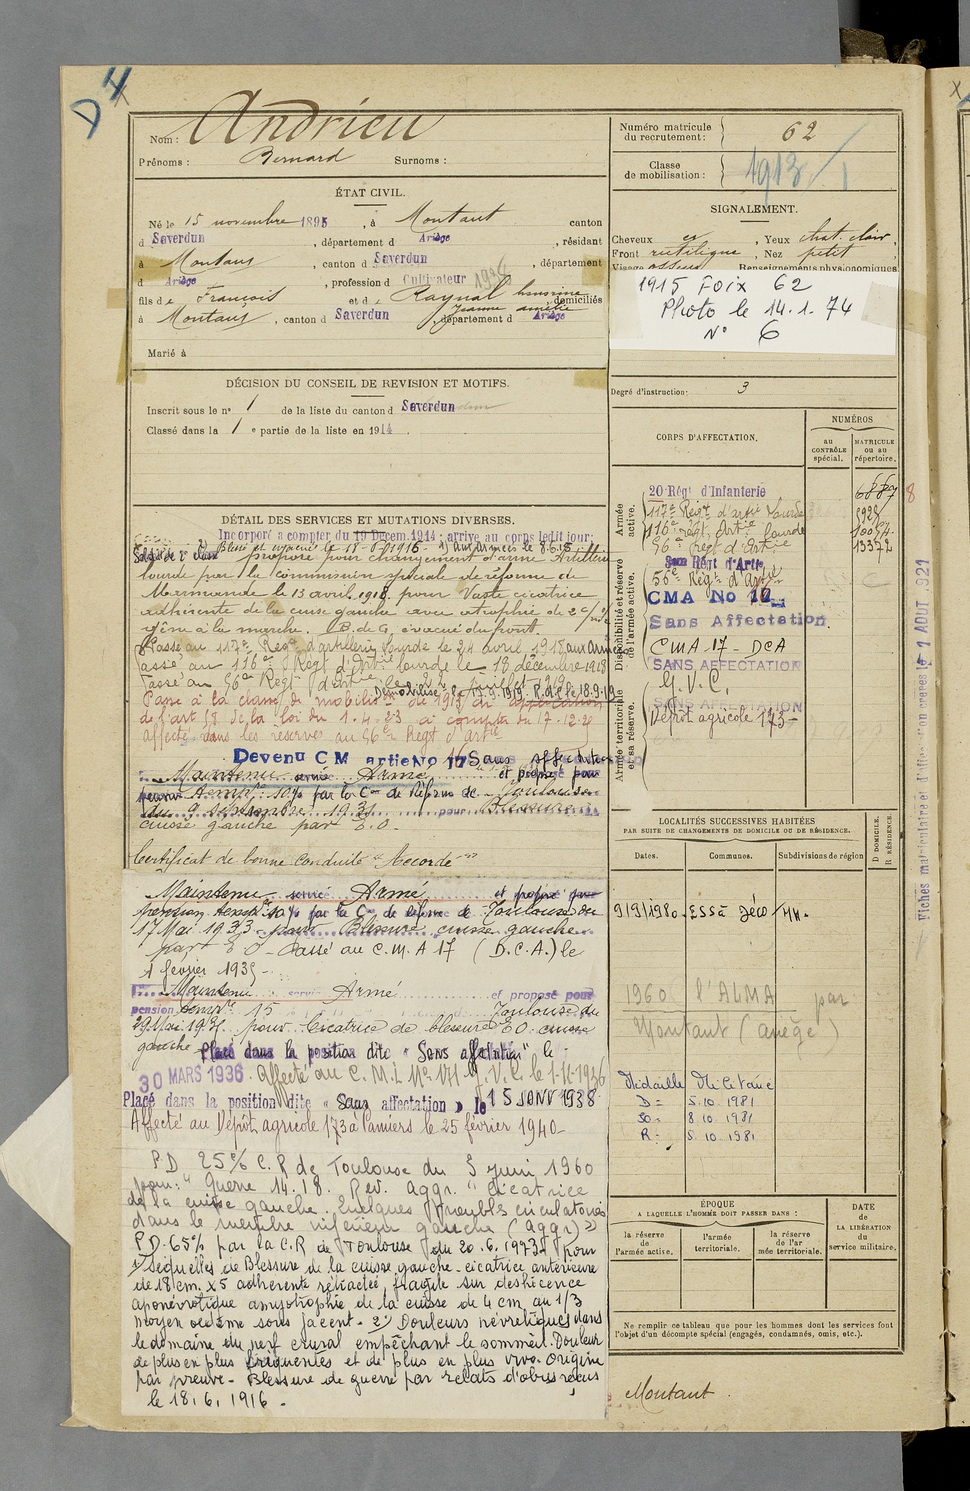 D4
Nom : Andrieu
Prénoms : Bernard Surnoms :
ÉTAT CIVIL.
Né le 15 novembre 1895, à Montaut canton
d Saverdun, département d Ariège, résidant
à Montaut, canton d Saverdun, département
d Ariège, profession d Cultivateur 1936
fils de François et de Raynal domiciliés
Jeanne
à Montaut, canton d Saverdun, département d Ariège
Marié à
DÉCISION DU CONSEIL DE REVISION ET MOTIFS.
Inscrit sous le n° 1 de la liste du canton d Saverdun
Classé dans la 1 e partie de la liste en 1914.
DÉTAIL DES SERVICES ET MUTATIONS DIVERSES.
Incorporé à compter du 19 Décem. 1914 ; arrivé au corps ledit jour ;
Soldat de 2e classe
Blessé et évacué le 18-6-1916 - Aux Armées le 8.6.15
proposé pour changement d'arme Artillerie
lourde par la commission spéciale de réforme de
Marmande le 13 avril 1918 pour Vaste cicatrice
adhérente de la cuisse gauche avec atrophie de 2 c/m
gêne à la marche. B. de G. évacué du front.
Passé au 117e Régt d'artillerie lourde le 24 avril 1918 aux armées
Passé au 116e Régt d'Artie lourde le 18 décembre 1918
Passé au 56e Régt d'Artie le 22 juillet 1919
Démobilisé le 13.9.1919. R. d. C. le 18.9.19
Passé à la classe de mobilion de 1913 en application
de l'art 58 de la loi du 1-4-23 à compter du 17-12-29
Affecté dans les réserves au 56e Régt d'artie
Devenu C M artie No 17 Sans affectation
Maintenu service Armé et proposé pour
pension tempre 10% par la Con de Réforme de Toulouse
du 9 septembre 1931 pour Blessure
cuisse gauche par E.O.
Certificat de bonne conduite "Accordé"
Maintenu service Armé et proposé pour
pension tempre 10% par la Con de réforme de Toulouse du
17 Mai 1933 pour Blessure cuisse gauche
par E O - Passé au C.M.A 17 (D.C.A.) le
1 février 1935 -
Maintenu service Armé et proposé pour
pension temp. 15 Toulouse du
29 Mai 1935 pour Cicatrice de blessure E O cuisse
gauche Placé dans la position dite "Sans affectation" le
30 MARS 1936. Affecté au C. M. I. No VII G. V. C. le 1-11-1936
Placé dans la position dite « Sans affectation » le 15 JANV 1938
Affecté au Dépôt agricole 173 à Pamiers le 25 février 1940 -
P.D 25% C.R de Toulouse du 3 juin 1960
pour : "Guerre 14.18. Rev. aggr. "Cicatrice
de la cuisse gauche. Quelques troubles circulatoires
dans le membre inférieur gauche (aggr)"
P.D. 65% par la C.R de Toulouse du 20.6.1973 pour
1) Séquelles de Blessure de la cuisse gauche - cicatrice antérieure
de 18 cm x 5 adhérente rétractée, fragile sur deshicence
aponévrotique amyotrophie de la cuisse de 4 cm au 1/3
moyen oedème sous jacent - 2) Douleurs névretiques dans
le domaine du nerf crural empêchant le sommeil. Douleur
de plus en plus fréquentes et de plus en plus vives. Origine
par preuve - Blessure de guerre par éclats d'obus reçus
le 18.6.1916 -
Numéro matricule du recrutement : 62
Classe de mobilisation : 1913
SIGNALEMENT.
Cheveux , Yeux chat. clair,
Front rectiligne, Nez petit
Visage osseux Renseignements physionomiques
1915 Foix 62
Photo le 14.1.74
N° 6
Degré d'instruction : 3
CORPS D'AFFECTATION.
NUMÉROS
au CONTRÔLE spécial.
MATRICULE ou au répertoire.
Armée active.
20 Régt d'Infanterie
117e Régt d'artie lourde
116e Régt Artie lourde
56e Régt d'Artie
13372
8
Disponibilité et réserve de l'armée active.
56e Régt d'Artie
CMA No 17
Sans Affectation.
CMA 17 - DCA
SANS AFFECTATION
G.V.C.
SANS AFFECTATION
Dépôt agricole 173 -
Armée territoriale et sa réserve.
LOCALITÉS SUCCESSIVES HABITÉES
PAR SUITE DE CHANGEMENTS DE DOMICILE OU DE RÉSIDENCE.
Dates. Communes. Subdivisions de région
D DOMICILE.
R. RÉSIDENCE.
9/9/1980
1960 l'ALMA par
Montaut (Ariège)
Médaille Militaire
D = 5.10.1981
SO = 8.10.1981
R = 5.10.1981
ÉPOQUE
A LAQUELLE L'HOMME DOIT PASSER DANS :
la réserve de l'armée active.
l'armée territoriale.
la réserve de l'armée territoriale.
DATE DE LA LIBÉRATION du service militaire.
Ne remplir ce tableau que pour les hommes dont les services font
l'objet d'un décompte spécial (engagés, condamnés, omis, etc.).
Montaut.